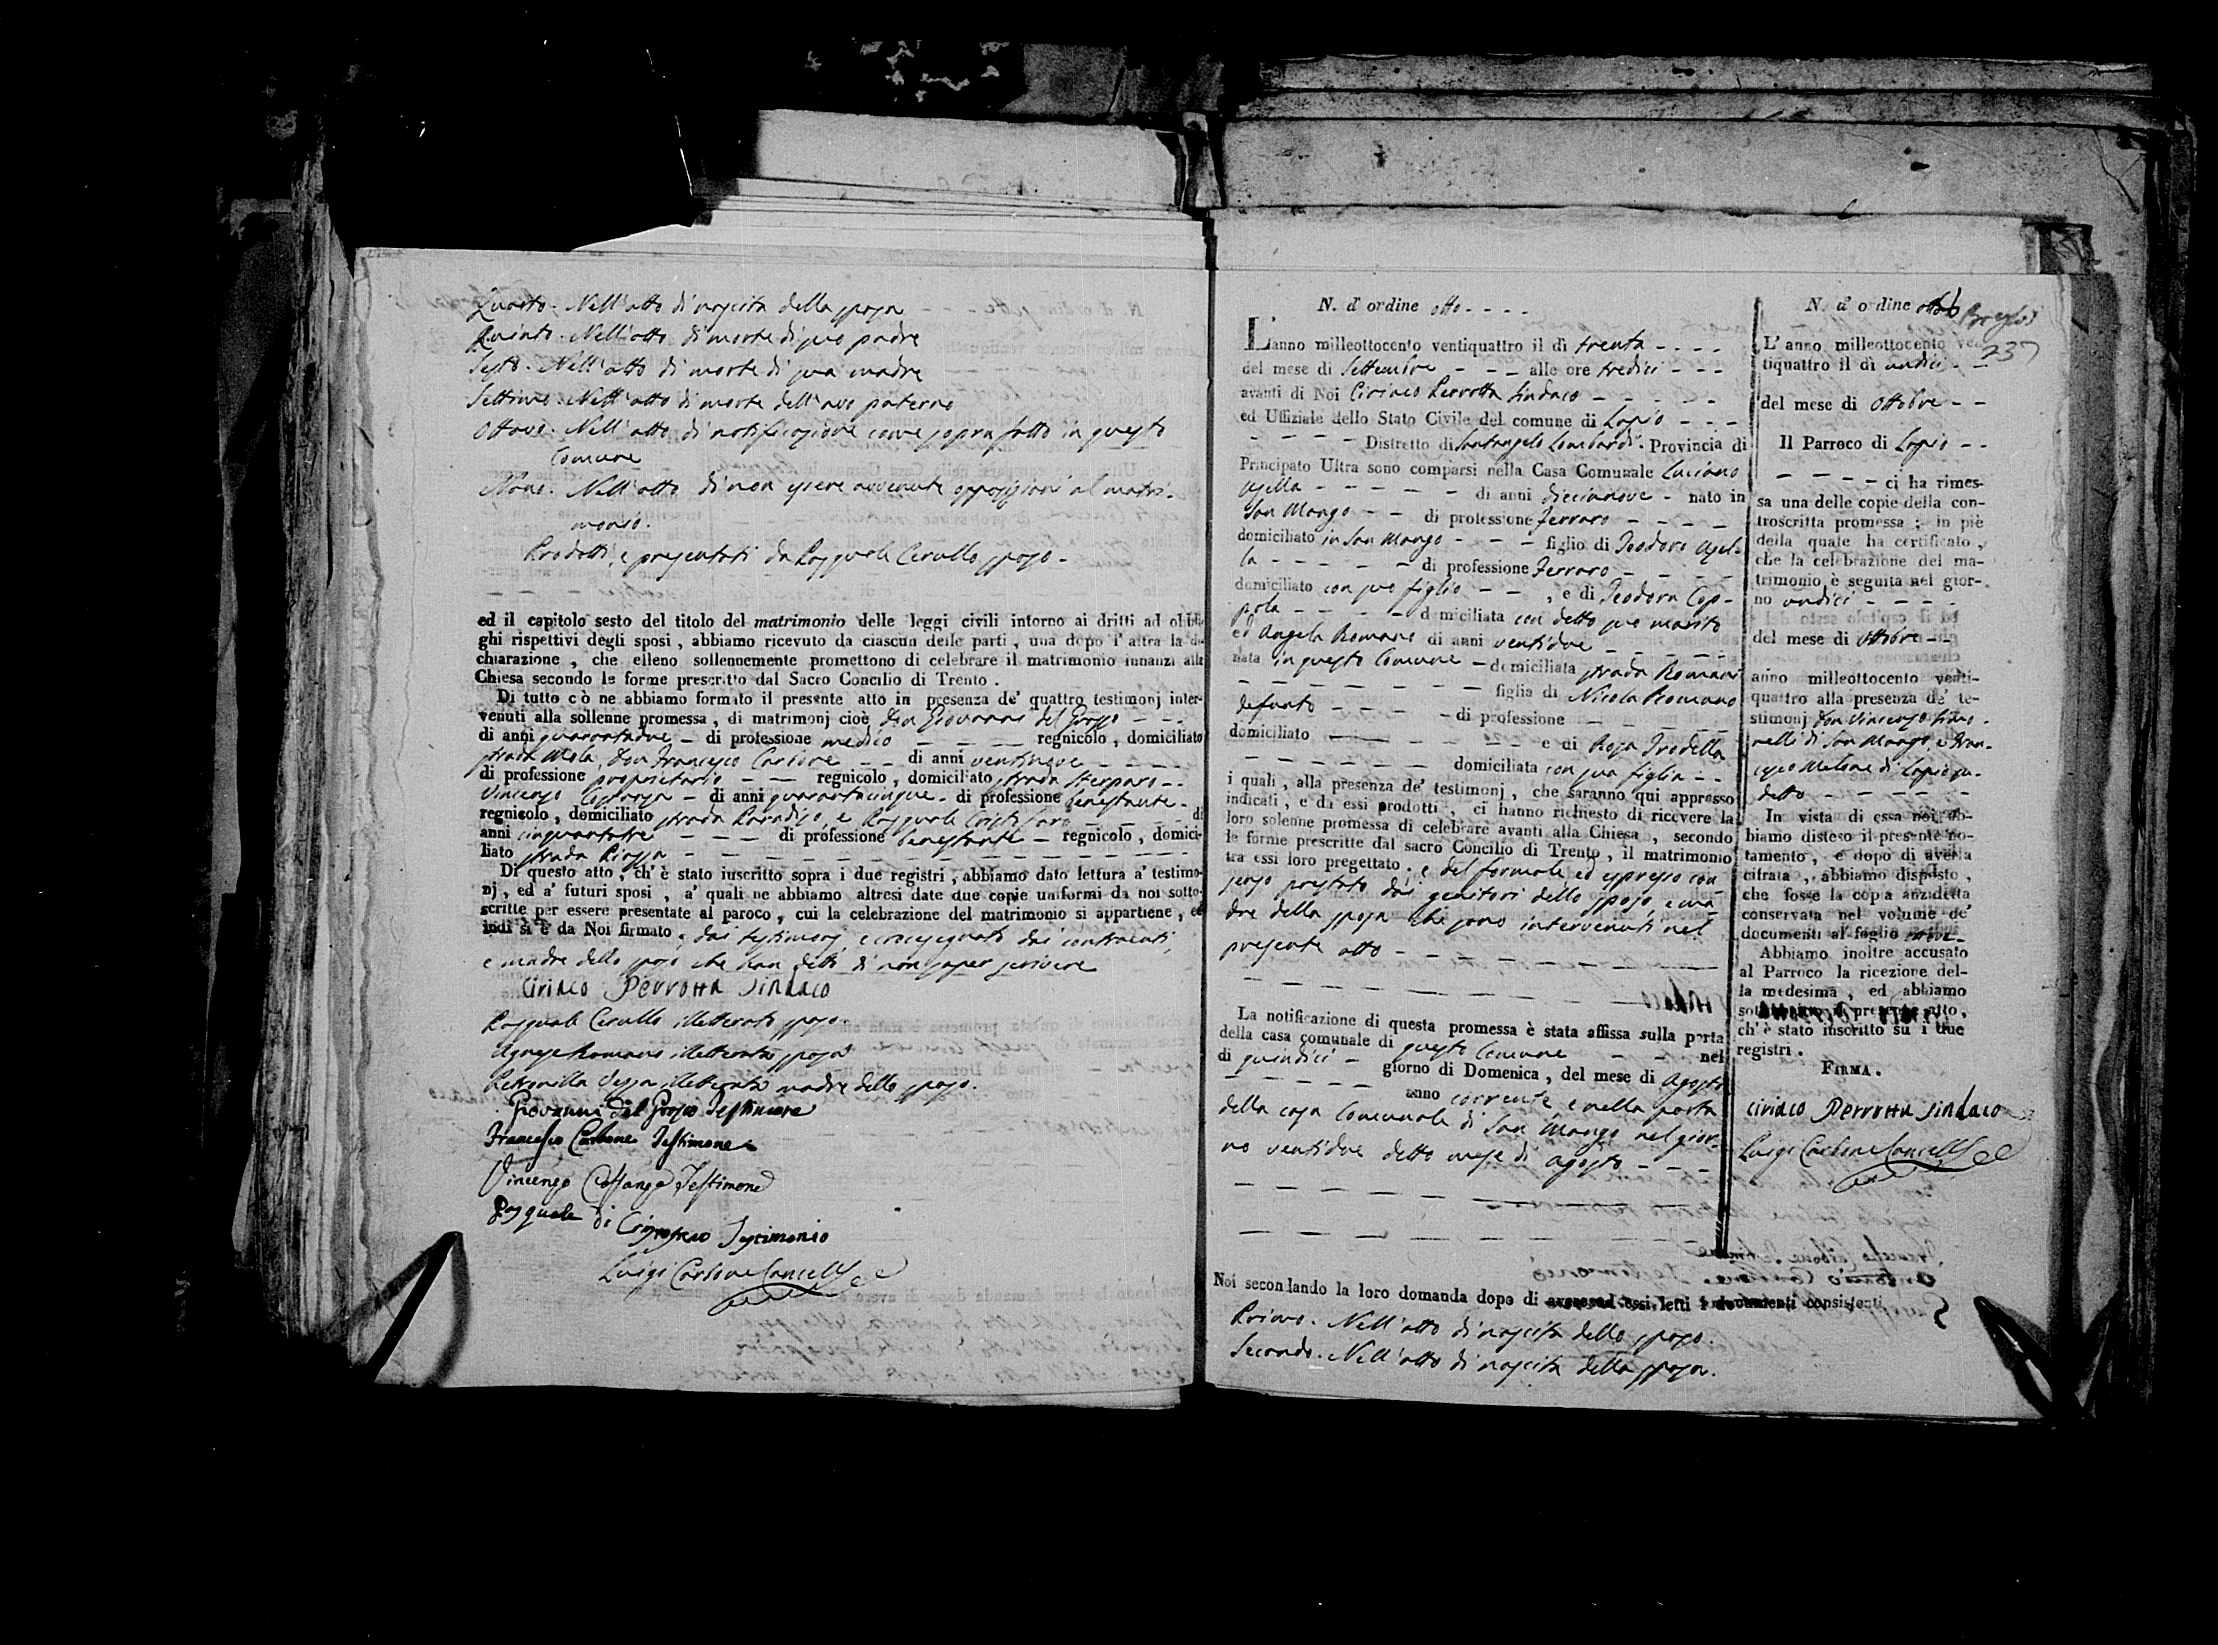 Quarto. Nell'atto di nascita della sposa
Quinto. Nell'atto di morte di suo padre
Sesto. Nell'atto di morte di sua madre
Settimo. Nell'atto di morte dell'avo paterno
Ottavo. Nell'atto di notificazione come sopra fatto in questo
Comune
Nono. Nell'atto di non essere avvenute opposizioni al matri-
monio.
Prodotti, e presentati da Pasquale Cerullo sposo -
ed il capitolo sesto del titolo del matrimonio delle leggi civili intorno ai dritti ad obbli-
ghi rispettivi degli sposi, abbiamo ricevuto da ciascun delle parti, una dopo l'altra la di-
chiarazione, che elleno sollennemente promettono di celebrare il matrimonio innanzi alla
Chiesa secondo le forme prescritto dal Sacro Concilio di Trento.
Di tutto ciò ne abbiamo formato il presente atto in presenza de' quattro testimonj inter-
venuti alla sollenne promessa, di matrimonj cioè Don Giovanni del Grosso - - -
di anni quarantadue - di professione medico - - - regnicolo, domiciliato
strada Mola, Don Francesco Carbone - - di anni ventinove - - - -
di professione proprietario - - regnicolo, domiciliato strada Sterparo - -
Vincenzo Costanza - di anni quarantacinque - di professione benestante -
regnicolo, domiciliato strada Paradiso, e Pasquale Cristofaro - - - di
anni cinquantatre - - - di professione benestante - regnicolo, domici-
liato strada Piazza - - - - - - - - - - - - - -
Di questo atto, ch' è stato iuscritto sopra i due registri, abbiamo dato lettura a' testimo-
nj, ed a' futuri sposi, a' quali ne abbiamo altresì date due copie uniformi da noi sotto-
scritte per essere presentate al paroco, cui la celebrazione del matrimonio si appartiene, ed
indi si è da Noi firmato, dai testimonj, e crocesegnato dai contraenti,
e madre dello sposo che han detto di non saper scrivere
Ciriaco Perrotta Sindaco
Pasquale Cerullo illetterato sposo.
Agnese Romano illetterata sposa
Petronilla illetterata madre dello sposo.
Giovanni del Grosso Testimone
Francesco Carbone Testimone
Vincenzo Costanza Testimone
Pasquale di Cristofaro Testimonio
Luigi Carbone Cancell.
N. d' ordine otto - - - -
L'anno milleottocento ventiquattro il dì trenta - - - -
del mese di Settembre - - - alle ore tredici - - -
avanti di Noi Ciriaco Perrotta Sindaco - - - - -
ed Uffiziale dello Stato Civile del comune di Lapio - - -
- - - - Distretto di Santangelo Lombardi. Provincia di
Principato Ultra sono comparsi nella Casa Comunale Luciano
Ajella - - - - - di anni diecianove - nato in
San Mango - - di professione Ferraro - - - -
domiciliato in San Mango - - - figlio di Teodoro Ajel-
la - - - - - di professione Ferraro - - - -
domiciliato con suo figlio - - , e di Teodora Cop-
pola - - - - domiciliata con detto suo marito
ed Angela Romano di anni ventidue - - - - -
nata in questo Comune - domiciliata strada Romani
- - - - - - - figlia di Nicola Romano
defunto - - - - di professione - - - -
domiciliato - - - - - e di Rosa Trodella
- - - - - - domiciliata con sua figlia - -
i quali, alla presenza de' testimonj, che saranno qui appresso
indicati, e da essi prodotti, ci hanno richiesto di ricevere la
loro solenne promessa di celebrare avanti alla Chiesa, secondo
le forme prescritte dal sacro Concilio di Trento, il matrimonio
tra essi loro pregettato. e del formale ed espresso con
senso prestato dai genitori dello sposo, e ma-
dre della sposa che sono intervenuti nel
presente atto - - - - - - - -
La notificazione di questa promessa è stata affissa sulla porta
della casa comunale di questo Comune - - nel
di quindici - giorno di Domenica, del mese di Agosto
- - - - - anno corrente, e nella porta
della casa Comunale di San Mango nel gior-
no ventidue detto mese di agosto - - -
Noi secondando la loro domanda dopo di essi letti i documenti consistenti
Primo. Nell'atto di nascita dello sposo.
Secondo. Nell'atto di nascita della sposa.
N. d' ordine otto
237
L' anno milleottocento ven-
tiquattro il dì undici - -
del mese di Ottobre - -
Il Parroco di Lapio - -
- - - - ci ha rimes-
sa una delle copie della con-
troscritta promessa; in piè
della quale ha certificato,
che la celebrazione del ma-
trimonio è seguita nel gior-
no undici - - - -
del mese di Ottobre - -
anno milleottocento venti-
quattro alla presenza de' te-
stimonj Don Vincenzo
di San Mango, e Fran-
cesco Melone di Lapio su-
detto - - - - -
In vista di essa noi ab-
biamo disteso il presente no-
tamento, e dopo di averla
citrata, abbiamo disposto,
che fosse la copia anzidetta
conservata nel volume de'
documenti al foglio
Abbiamo inoltre accusato
al Parroco la ricezione del-
la medesima, ed abbiamo
il presente atto,
ch' è stato inscritto su i due
registri.
FIRMA.
Ciriaco Perrotta Sindaco
Luigi Carbone Cancell.